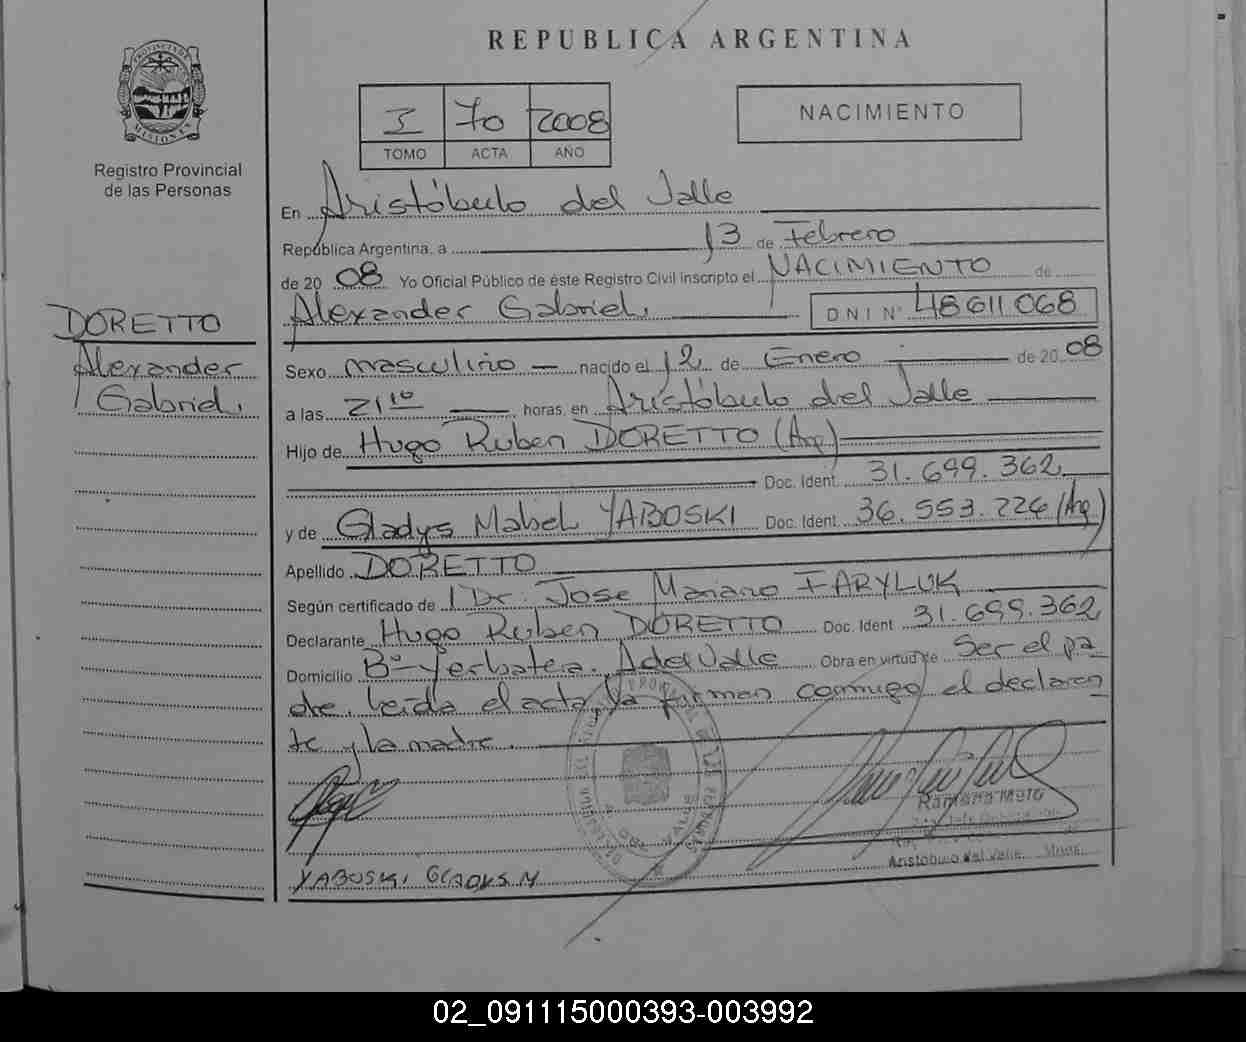 REPUBLICA ARGENTINA
PROVINCIA DE
MISIONES
Registro Provincial
de las Personas
I 70 2008
TOMO ACTA AÑO
NACIMIENTO
En Aristóbulo del Valle
República Argentina, a 13 de Febrero
de 20 08 Yo Oficial Público de éste Registro Civil inscripto el NACIMIENTO de
Alexander Gabriel. DNI Nº 48611068
DORETTO
Alexander
Gabriel.
Sexo masculino nacido el 12 de Enero de 20 08
a las 21¹⁰ horas, en Aristóbulo del Valle
Hijo de Hugo Ruben DORETTO (Arg)
Doc. Ident. 31.699.362
y de Gladys Mabel YABOSKI Doc. Ident. 36.553.226 (Arg)
Apellido DORETTO
Según certificado de Dr. Jose Mariano FARYLUK
Declarante Hugo Ruben DORETTO Doc. Ident. 31.699.362
Domicilio Bº Yerbatera. A del Valle Obra en virtud de Ser el pa
dre. leída el acta, la firman conmigo el declaran
te y la madre.
Ramona Melo
Aristóbulo del Valle Mnes.
YABOSKI GLADYS M
02_091115000393-003992